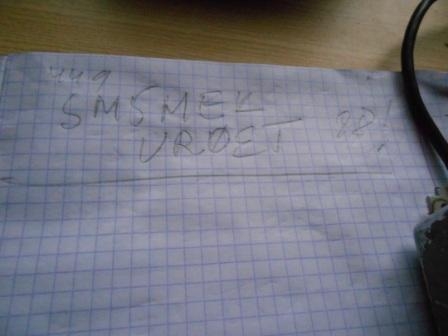 449
SMSMEK
VRØET 28!